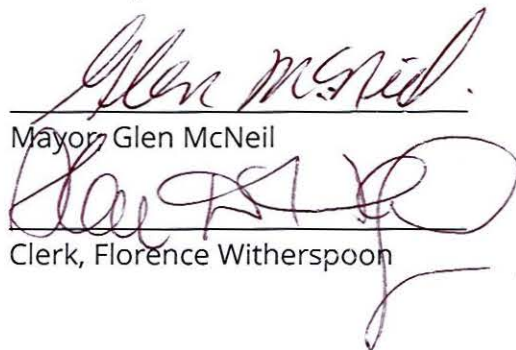 Glen McNeil.
Mayor, Glen McNeil
Clerk, Florence Witherspoon